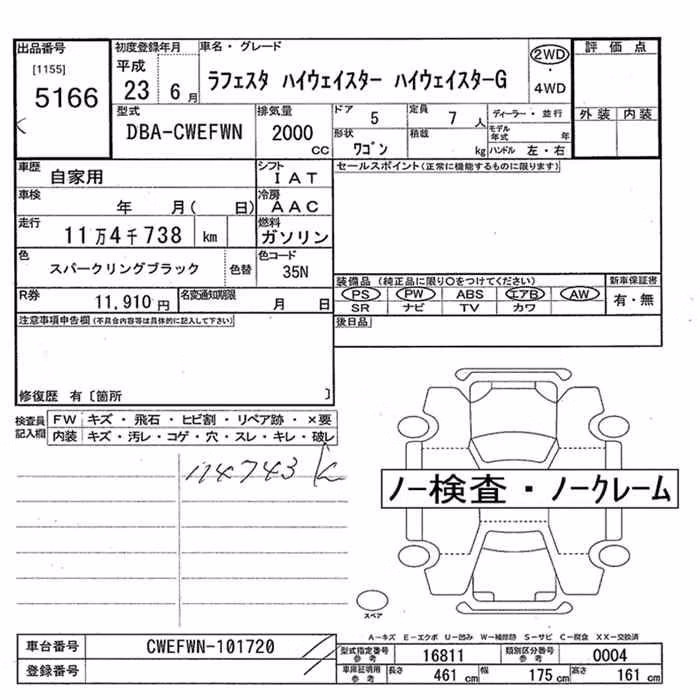 出品番号
[1155]
5166
初度登録年月
平成
23 6月
車名・グレード
ラフェスタ ハイウェイスター ハイウェイスターG
2WD
・
4WD
評価点
外装 内装
型式
DBA-CWEFWN
排気量
2000
cc
ドア 5
定員 7 人
ディーラー・並行
形状
ワゴン
積載
kg
モデル年式 年
ハンドル 左・右
車歴
自家用
シフト
I A T
車検
年 月( 日)
冷房
A A C
走行
11万4千738 km
燃料
ガソリン
色
スパークリングブラック
色替
色コード
35N
R券
11,910円
名変通知期限
月 日
セールスポイント(正常に機能するものに限ります)
装備品(純正品に限り○をつけてください)
PS PW ABS エアB AW
SR ナビ TV カワ
新車保証書
有・無
後日品
注意事項申告欄(不具合内容等は具体的に記入して下さい)
修復歴 有〔箇所 〕
検査員
記入欄
FW キズ・飛石・ヒビ割・リペア跡・×要
内装 キズ・汚レ・コゲ・穴・スレ・キレ・破レ
114743 k
ノー検査・ノークレーム
スペア
A−キズ E−エクボ U−凹み W−補修跡 S−サビ C−腐食 XX−交換済
車台番号
CWEFWN-101720
登録番号
型式指定番号
参考
16811
類別区分番号
参考
0004
車庫証明用
参考
長さ 461 cm 幅 175 cm 高さ 161 cm